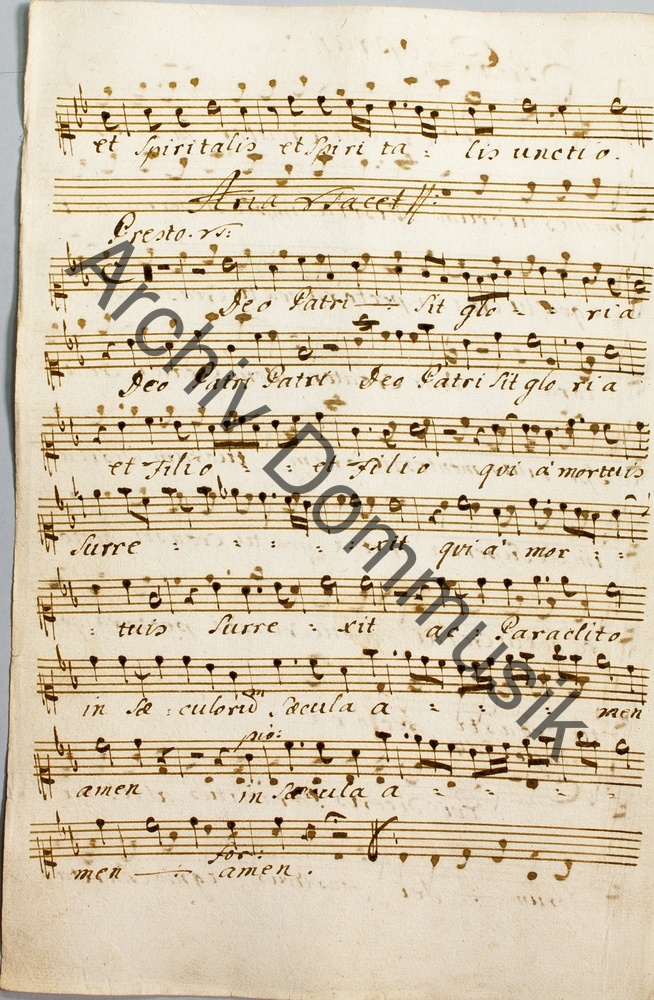 et Spiritalis et Spiri ta - lis unctio.
Aria Tacet
Presto.
Deo Patri - Sit glo - - ria
Deo Patri Patri Deo Patri Sit glo ria
et Filio - - et Filio qui a mortuis
Surre - - - - - xit qui a mor - -
- tuis Surre - xit ac - Paraclito
in Sæ - culorum Sæcula a - - - - men
pio:
amen in Sæcula a - - - -
for:
men - amen.
Archiv Dommusik